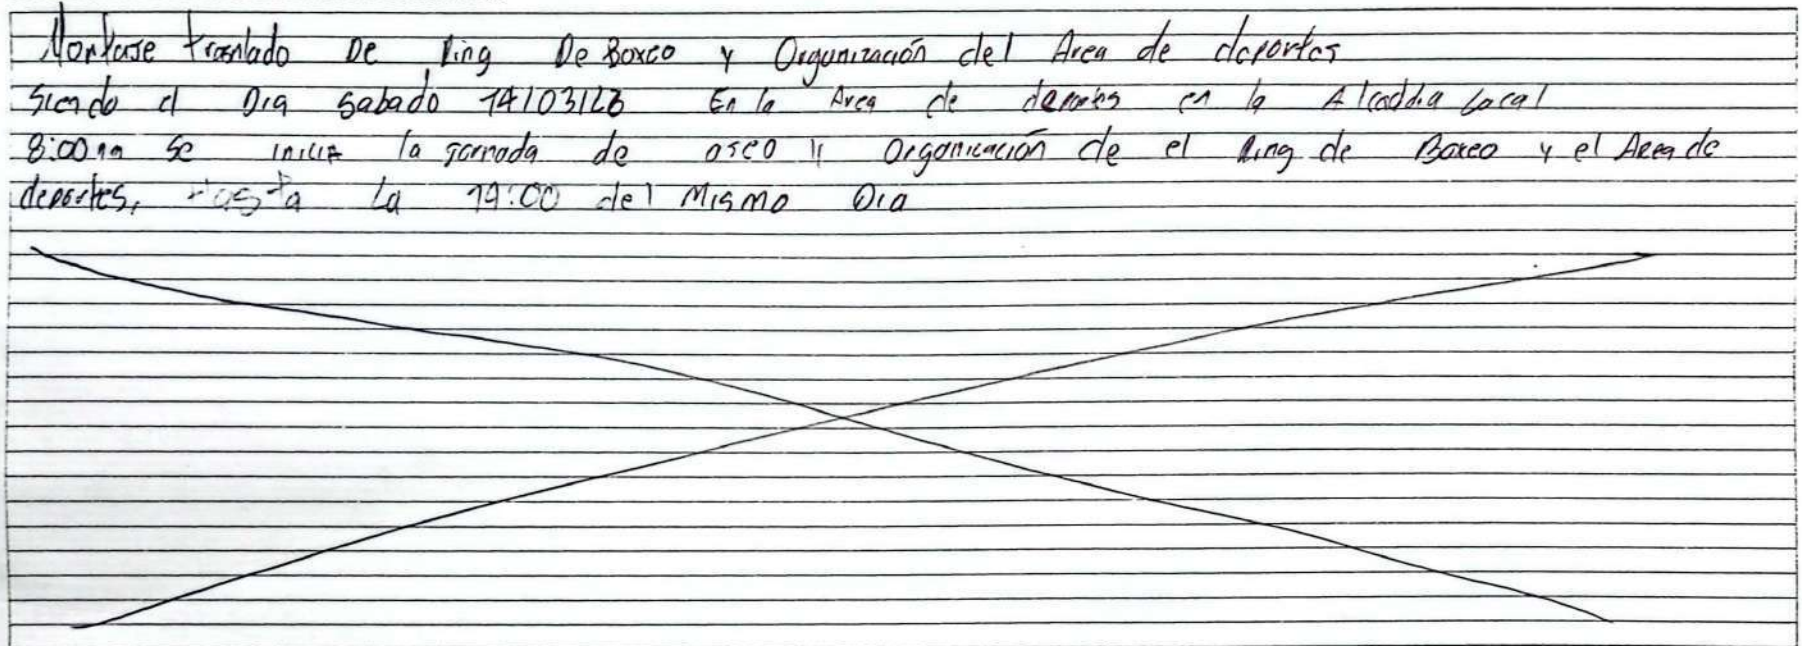 Montaje traslado De Ring De Boxeo y Organización del Area de deportes
Siendo el Dia sabado 14/03/26 En la Area de deportes en la Alcaddia Local
8:00 am se inicia la jornada de aseo y Organización de el Ring de Boxeo y el Area de
deportes, Hasta La 14:00 del Mismo Dia